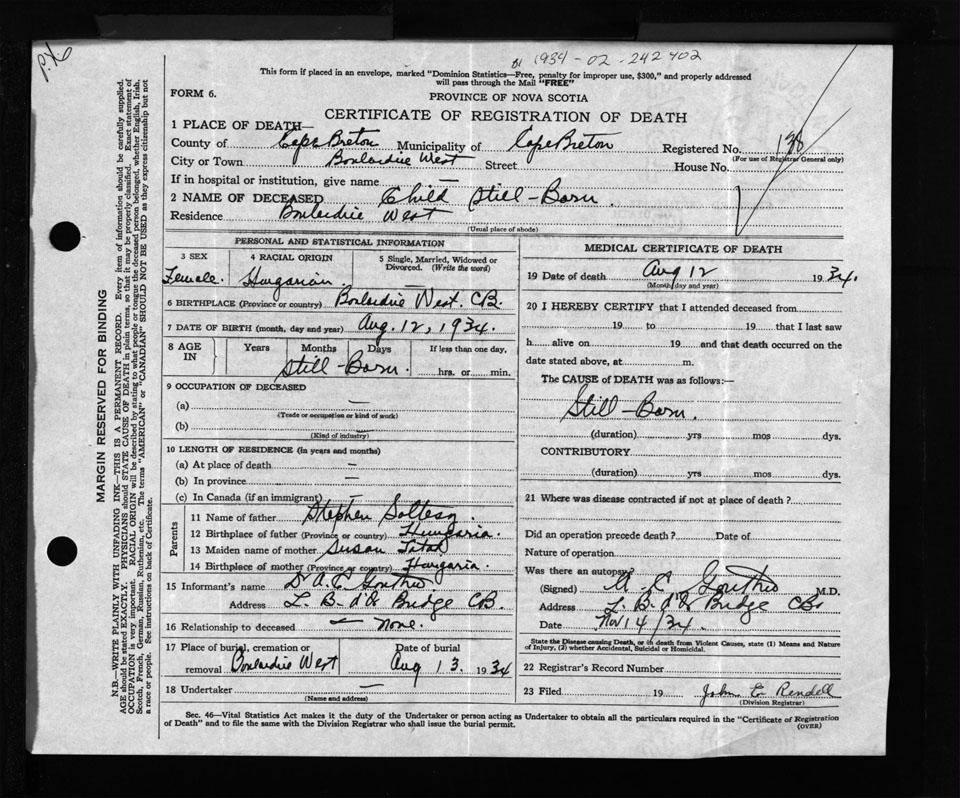 1934-02-242402
This form if placed in an envelope, marked "Dominion Statistics—Free, penalty for improper use, $300," and properly addressed
will pass through the Mail "FREE"
FORM 6.
PROVINCE OF NOVA SCOTIA
CERTIFICATE OF REGISTRATION OF DEATH
1 PLACE OF DEATH—
County of Cape Breton Municipality of Cape Breton Registered No. 138
(For use of Registrar General only)
City or Town Boulardrie West Street House No.
If in hospital or institution, give name —
2 NAME OF DECEASED Child Still-Born.
Residence Boulardrie West
(Usual place of abode)
PERSONAL AND STATISTICAL INFORMATION
3 SEX 4 RACIAL ORIGIN 5 Single, Married, Widowed or
Divorced. (Write the word)
Female. Hungarian —
6 BIRTHPLACE (Province or country) Boulardrie West. CB.
7 DATE OF BIRTH (month, day and year) Aug. 12, 1934.
8 AGE IN Years Months Days If less than one day,
Still-Born. hrs. or min.
9 OCCUPATION OF DECEASED
(a) —
(Trade or occupation or kind of work)
(b) —
(Kind of industry)
10 LENGTH OF RESIDENCE (In years and months)
(a) At place of death —
(b) In province —
(c) In Canada (if an immigrant) —
Parents
11 Name of father Stephen Soltesz
12 Birthplace of father (Province or country) Hungaria.
13 Maiden name of mother Susan Tatar
14 Birthplace of mother (Province or country) Hungaria.
15 Informant's name Dr A. C. Gouthro
Address L. B-d'Or Bridge CB.
16 Relationship to deceased — None.
17 Place of burial, cremation or removal Boulardrie West Date of burial Aug 13. 1934
18 Undertaker —
(Name and address)
MEDICAL CERTIFICATE OF DEATH
19 Date of death Aug 12 1934.
(Month, day and year)
20 I HEREBY CERTIFY that I attended deceased from
19 to 19 that I last saw
h alive on 19 and that death occurred on the
date stated above, at m.
The CAUSE of DEATH was as follows:—
Still-Born.
(duration) yrs mos dys.
CONTRIBUTORY
(duration) yrs mos dys.
21 Where was disease contracted if not at place of death?
Did an operation precede death? Date of
Nature of operation
Was there an autopsy?
(Signed) A. C. Gouthro M.D.
Address L. B-d'Or Bridge CB.
Date Nov 14/34.
State the Disease causing Death, or in death from Violent Causes, state (1) Means and Nature
of Injury, (2) whether Accidental, Suicidal or Homicidal.
22 Registrar's Record Number
23 Filed 19 John E Rendell
(Division Registrar)
Sec. 46—Vital Statistics Act makes it the duty of the Undertaker or person acting as Undertaker to obtain all the particulars required in the "Certificate of Registration
of Death" and to file the same with the Division Registrar who shall issue the burial permit. (OVER)
MARGIN RESERVED FOR BINDING
N.B.—WRITE PLAINLY WITH UNFADING INK—THIS IS A PERMANENT RECORD. Every item of information should be carefully supplied.
AGE should be stated EXACTLY. PHYSICIANS should STATE CAUSE OF DEATH in plain terms, so that it may be properly classified. Exact statement of
OCCUPATION is very important. RACIAL ORIGIN will be described by stating to what people or tongue the deceased person belonged, whether English, Irish,
Scotch, French, German, Russian, Ruthenian, etc. The terms "AMERICAN" or "CANADIAN" SHOULD NOT BE USED as they express citizenship but not
a race or people. See instructions on back of Certificate.